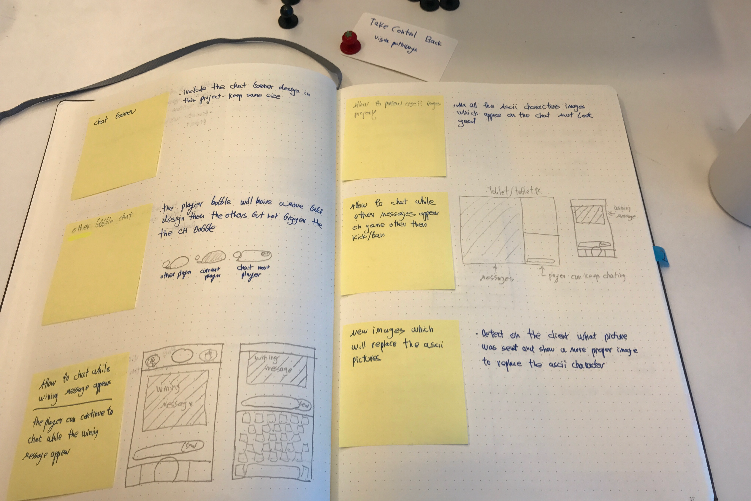 Take Control Back
user pathways
chat Banner
- Include the chat banner design in
this project - keep same size
other bubble chat
the player bubble will have a more
design then the others but not bigger the
the CH bobble
other player
current player
chat host
player
How to chat while
wining message appear
the player can continue to
chat while the wining
message appear
wining
message
Send
wining
message
Send
How to
- Mix all the Ascii characters images
which appear on the chat must look
good
How to chat while
other messages appear
on game other then
kick/ban
Tablet/
messages
player can keep chating
wining
message
New images which
will replace the ascii
pictures
- Detect on the client what picture
was sent and show a more proper image
to replace the ascii character